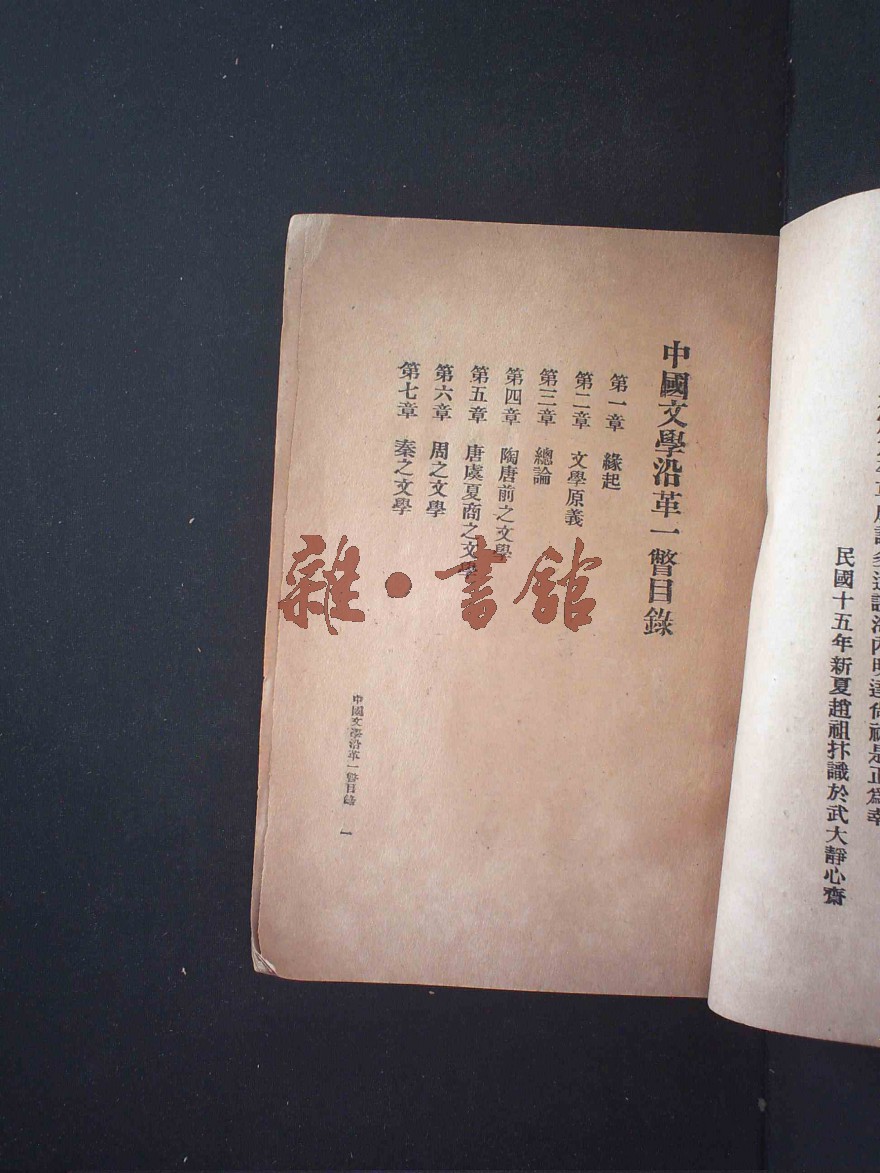 民國十五年新夏趙祖抃識於武大靜心齋
中國文學沿革一瞥目錄
第一章 緣起
第二章 文學原義
第三章 總論
第四章 陶唐前之文學
第五章 唐虞夏商之文學
第六章 周之文學
第七章 秦之文學
中國文學沿革一瞥目錄 一
雜·書館